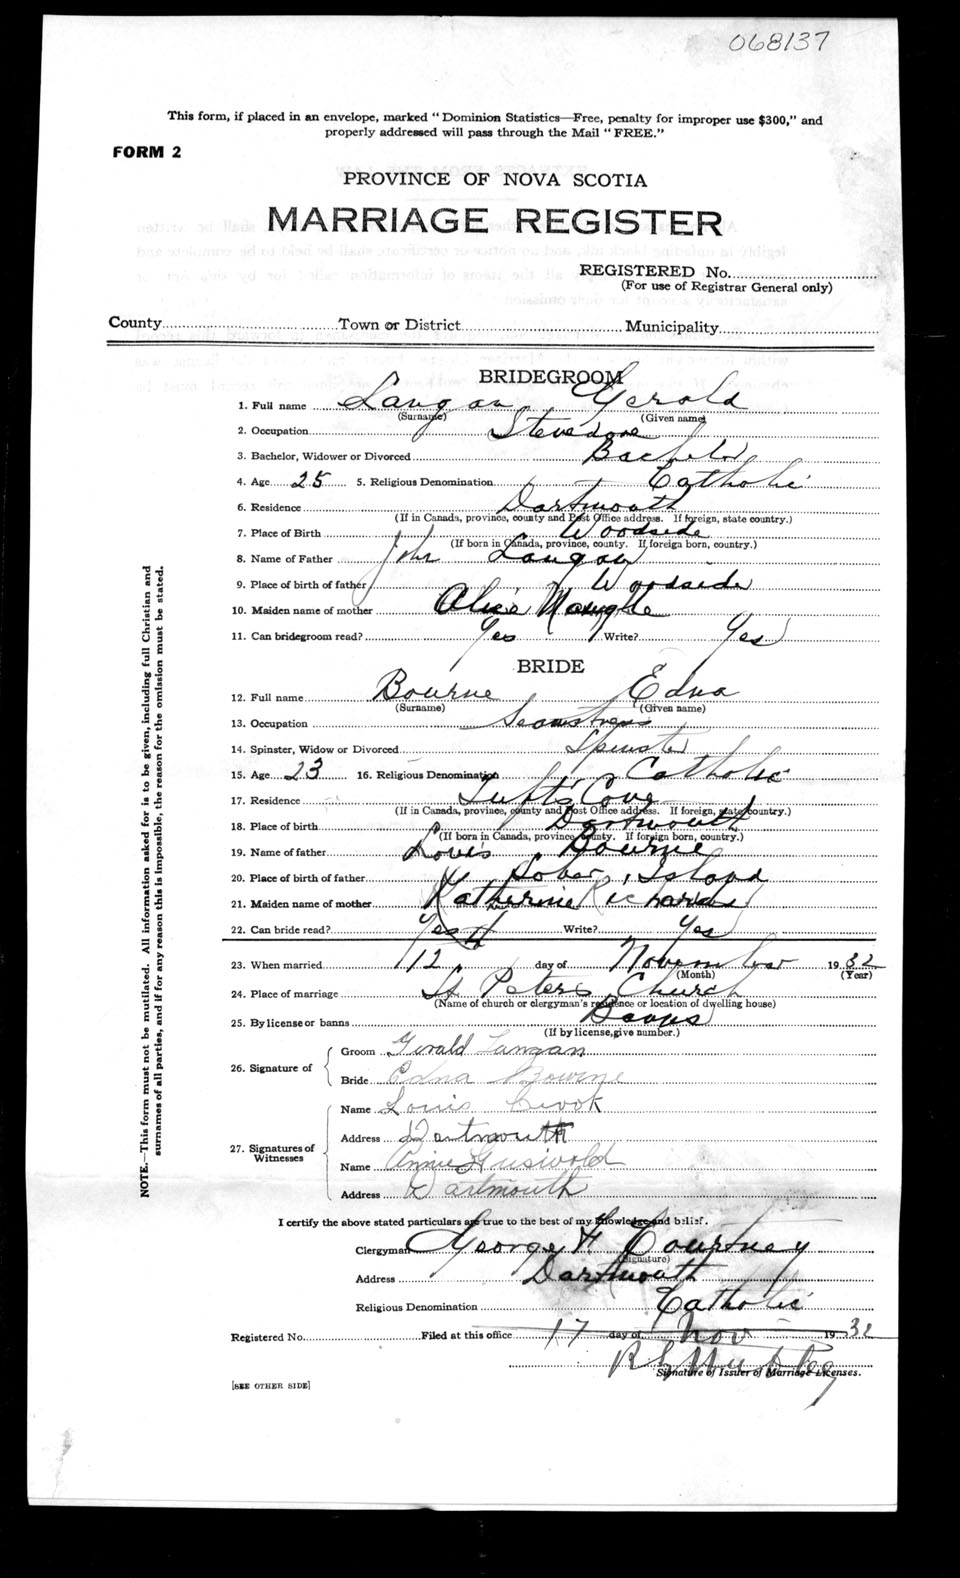 068137
This form, if placed in an envelope, marked “Dominion Statistics—Free, penalty for improper use $300,” and
properly addressed will pass through the Mail “FREE.”
FORM 2
PROVINCE OF NOVA SCOTIA
MARRIAGE REGISTER
REGISTERED No.
(For use of Registrar General only)
County Town or District Municipality
BRIDEGROOM
1. Full name Langan Gerald
(Surname) (Given name)
2. Occupation Stevedore
3. Bachelor, Widower or Divorced Bachelor
4. Age 25 5. Religious Denomination Catholic
6. Residence Dartmouth
(If in Canada, province, county and Post Office address. If foreign, state country.)
7. Place of Birth Woodside
(If born in Canada, province, county. If foreign born, country.)
8. Name of Father John Langan
9. Place of birth of father Woodside
10. Maiden name of mother Alice
11. Can bridegroom read? Yes Write? Yes
BRIDE
12. Full name Bourne Edna
(Surname) (Given name)
13. Occupation Seamstress
14. Spinster, Widow or Divorced Spinster
15. Age 23 16. Religious Denomination Catholic
17. Residence Tufts Cove
(If in Canada, province, county and Post Office address. If foreign, state country.)
18. Place of birth Dartmouth
(If born in Canada, province, county. If foreign born, country.)
19. Name of father Louis Bourne
20. Place of birth of father Sober Island
21. Maiden name of mother Katherine Richards
22. Can bride read? Yes Write? Yes
23. When married 12 day of November 1932
(Month) (Year)
24. Place of marriage St Peters Church
(Name of church or clergyman's residence or location of dwelling house)
25. By license or banns Banns
(If by license, give number.)
26. Signature of
Groom Gerald Langan
Bride Edna Bourne
27. Signatures of Witnesses
Name Louis Crook
Address Dartmouth
Name Annie Griswold
Address Dartmouth
I certify the above stated particulars are true to the best of my knowledge and belief.
Clergyman George H Courtney
(Signature)
Address Dartmouth
Religious Denomination Catholic
Registered No. Filed at this office 17 day of Nov 1932
Signature of Issuer of Marriage Licenses.
[SEE OTHER SIDE]
NOTE.—This form must not be mutilated. All information asked for is to be given, including full Christian and
surnames of all parties, and if for any reason this is impossible, the reason for the omission must be stated.